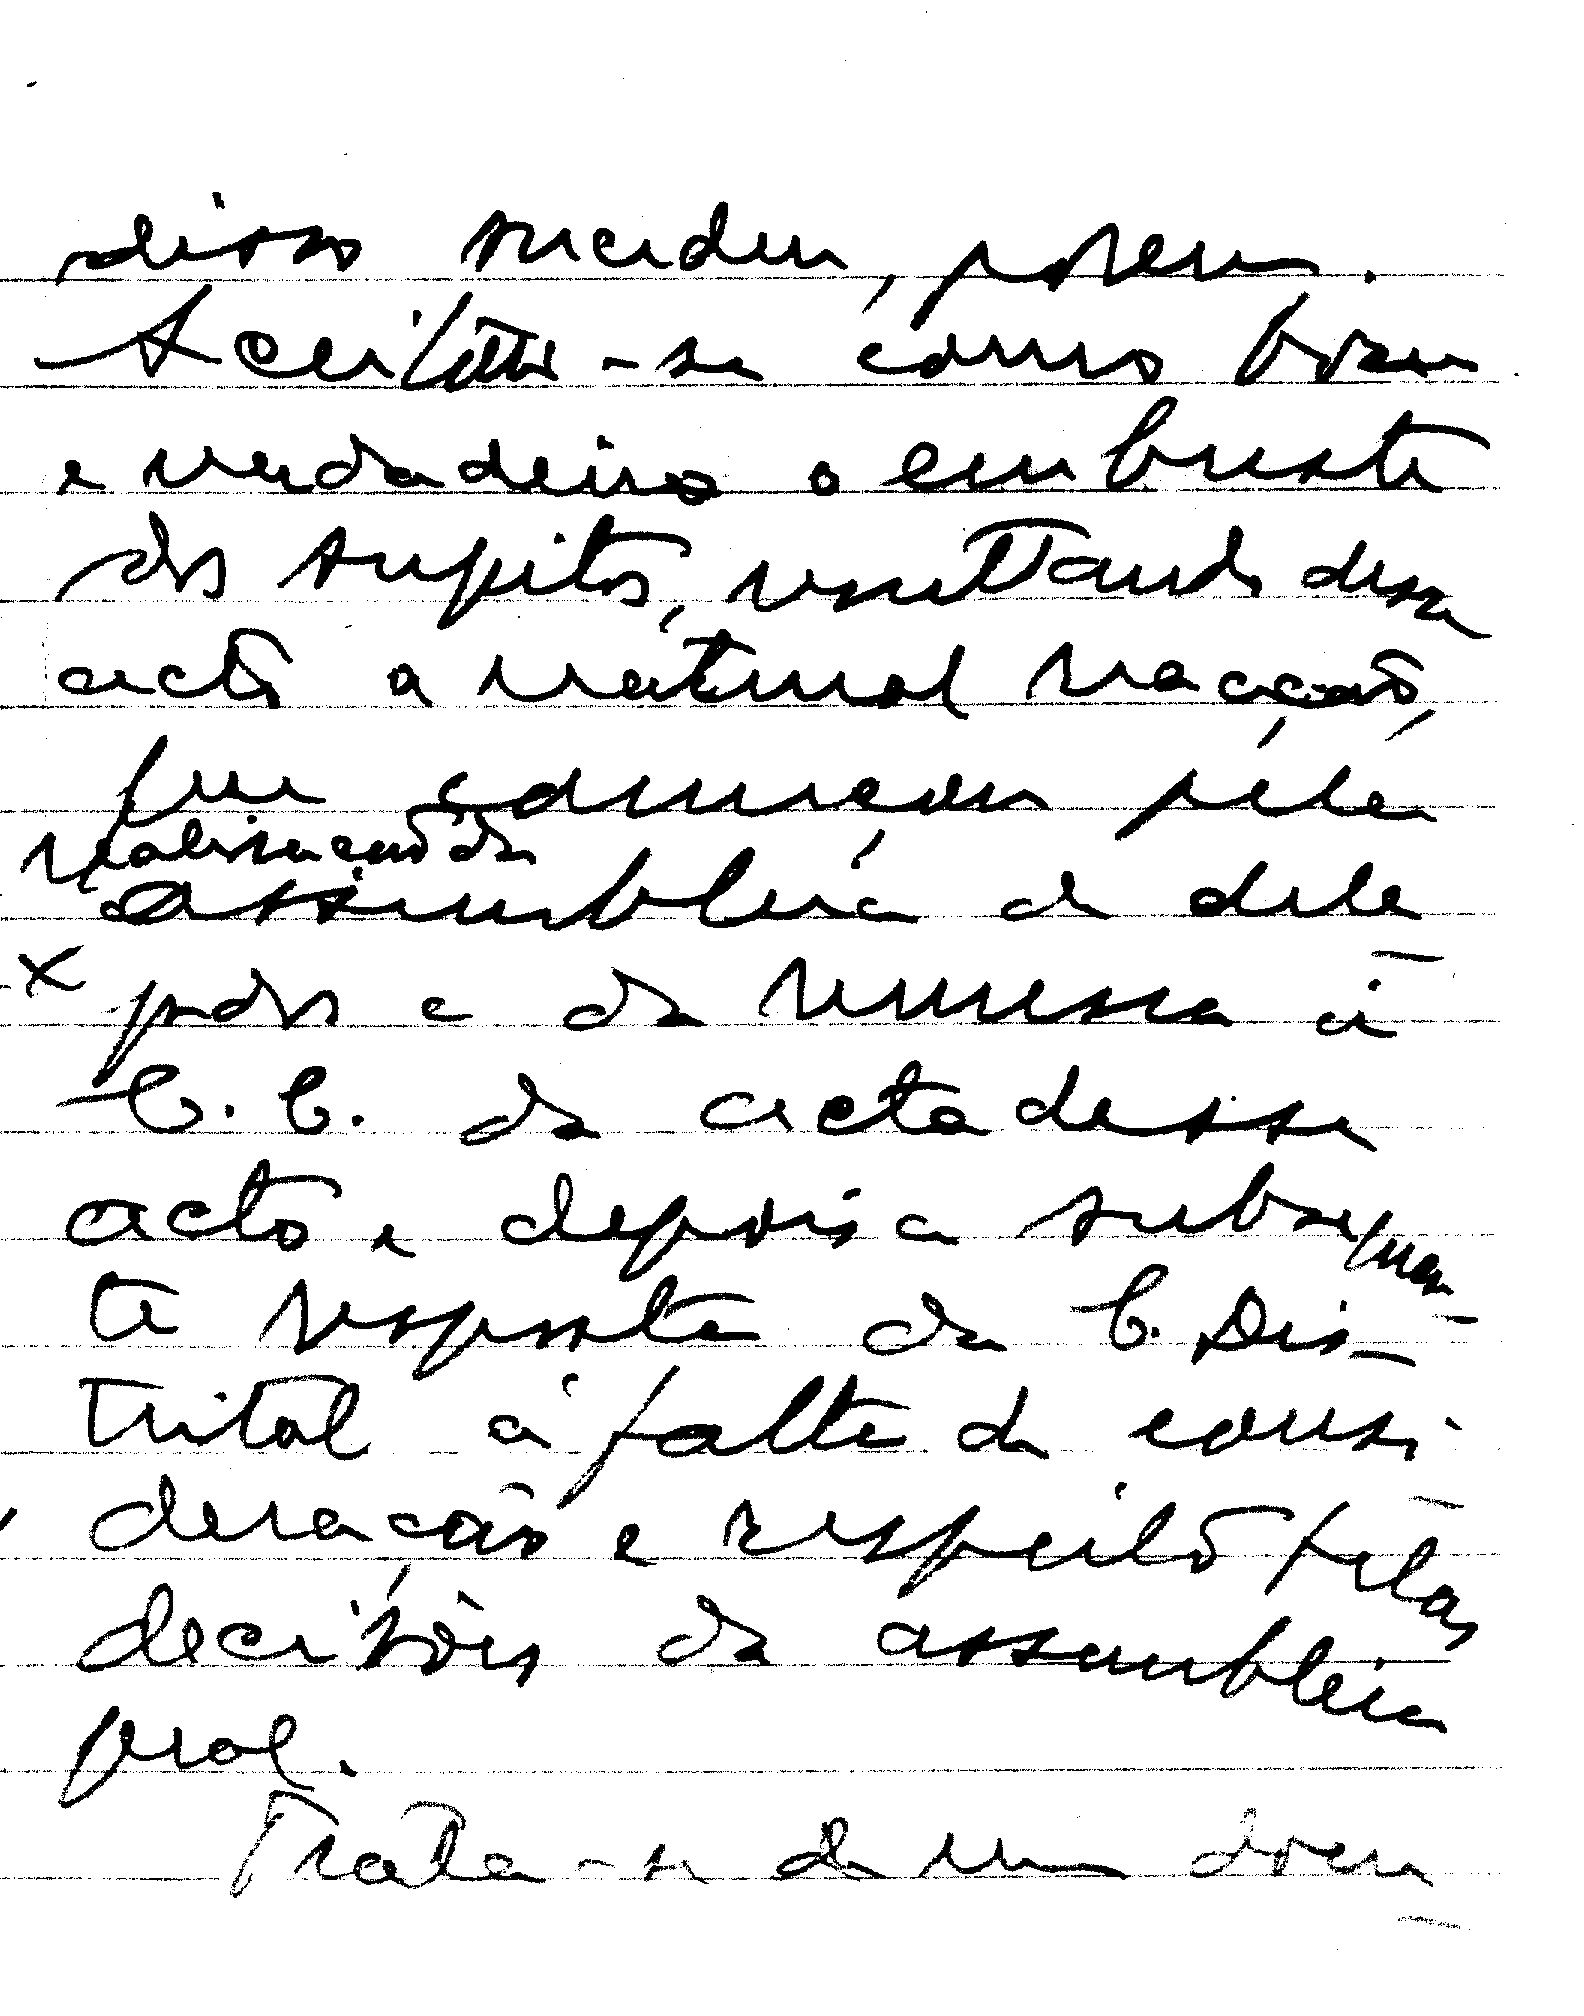 disso sucedeu, porem.
Aceitou-se como bom
e verdadeiro o embuste
dos sujeitos, resultando desse
acto a natural reacção,
que começou pela
realisação da
assembleia de dele-
x gados e da remessa à
C. C. da acta desse
acto e depois a subsequen-
te resposta da C. Dis-
trital à falta de consi-
deração e respeito pelas
decisões da assembleia
geral.
Trata-se de um docu-